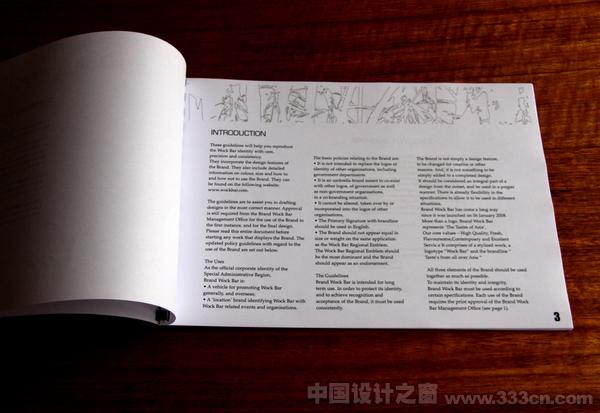 INTRODUCTION
These guidelines will help you reproduce
the Wock Bar identity with care,
precision and consistency.
They incorporate the design features of
the Brand. They also include detailed
information on colour, size and how to
and how not to use the Brand. They can
be found on the following website:
www.wockbar.com.
The guidelines are to assist you in drafting
designs in the most correct manner. Approval
is still required from the Brand Wock Bar
Management Office for the use of the Brand in
the first instance, and for the final design.
Please read this entire document before
starting any work that displays the Brand. The
updated policy guidelines with regard to the
use of the Brand are set out below.
The Uses
As the official corporate identity of the
Special Administrative Region,
Brand Wock Bar is:
• A vehicle for promoting Wock Bar
generally, and overseas;
• A 'location' brand identifying Wock Bar with
Wock Bar related events and organisations.
The basic policies relating to the Brand are:
• It is not intended to replace the logos or
identity of other organisations, including
government departments.
• It is an umbrella brand meant to co-exist
with other logos, of government as well
as non-government organisations,
in a co-branding situation.
• It cannot be altered, taken over by or
incorporated into the logos of other
organisations.
• The Primary Signature with brandline
should be used in English.
• The Brand should not appear equal in
size or weight on the same application
as the Wock Bar Regional Emblem.
The Wock Bar Regional Emblem should
be the most dominant and the Brand
should appear as an endorsement.
The Guidelines
Brand Wock Bar is intended for long
term use. In order to protect its identity,
and to achieve recognition and
acceptance of the Brand, it must be used
consistently.
The Brand is not simply a design feature,
to be changed for creative or other
reasons. And, it is not something to be
simply added to a completed design.
It should be considered an integral part of a
design from the outset, and be used in a proper
manner. There is already flexibility in the
specifications to allow it to be used in different
situations.
Brand Wock Bar has come a long way
since it was launched on 16 January 2008.
More than a logo, Brand Wock Bar
represents 'The Tastes of Asia'.
Our core values - High Quality, Fresh,
Flavoursome, Contemporary and Excellent
Service It comprises of a stylised wock, a
logotype "Wock Bar" and the brandline "
Taste's from all over Asia "
All three elements of the Brand should be used
together as much as possible.
To maintain its identity and integrity,
Brand Wock Bar must be used according to
certain specifications. Each use of the Brand
requires the prior approval of the Brand Wock
Bar Management Office (see page 1).
3
中国设计之窗
www.333cn.com